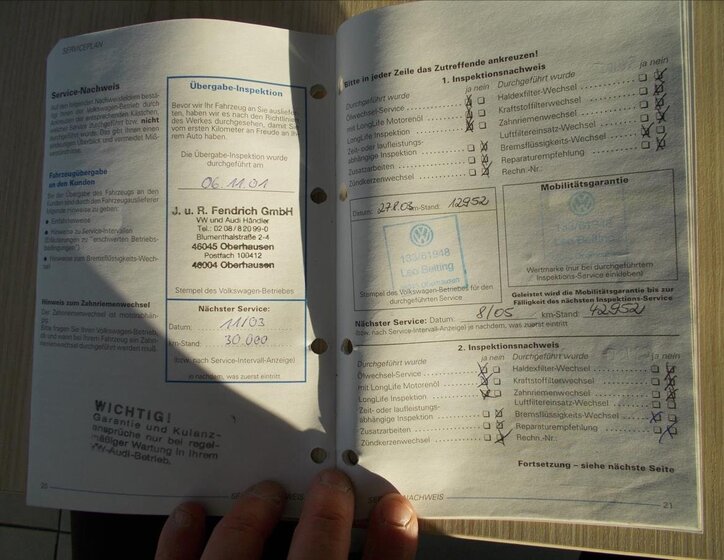 SERVICEPLAN
Service-Nachweis
Auf den folgenden Nachweisfeldern bestä-
tigt Ihnen der Volkswagen-Betrieb durch
Ankreuzen der entsprechenden Kästchen,
welcher Service durchgeführt bzw. nicht
durchgeführt wurde. Das gibt Ihnen einen
eindeutigen Überblick und vermeidet Miß-
verständnisse.
Fahrzeugübergabe
an den Kunden
Bei der Übergabe des Fahrzeugs an den
Kunden sind durch den Fahrzeugauslieferer
folgende Hinweise zu geben:
♦ Einfahrhinweise
♦ Hinweise zu Service-Intervallen
(Erläuterungen zu "erschwerten Betriebs-
bedingungen")
♦ Hinweise zum Bremsflüssigkeits-Wech-
sel
Hinweis zum Zahnriemenwechsel
Der Zahnriemenwechsel ist motorabhän-
gig.
Bitte fragen Sie Ihren Volkswagen-Betrieb,
ob und wann bei Ihrem Fahrzeug ein Zahn-
riemenwechsel durchgeführt werden muß.
WICHTIG!
Garantie und Kulanz-
ansprüche nur bei regel-
mäßiger Wartung in Ihrem
VW-Audi-Betrieb.
20
Übergabe-Inspektion
Bevor wir Ihr Fahrzeug an Sie auslie­fer-
ten, haben wir es nach den Richtlinien
des Werkes durchgesehen, damit Sie
vom ersten Kilometer an Freude an
Ihrem Auto haben.
Die Übergabe-Inspektion wurde
durchgeführt am
06.11.01
J. u. R. Fendrich GmbH
VW und Audi Händler
Tel.: 02 08 / 8 20 99-0
Blumenthalstraße 2-4
46045 Oberhausen
Postfach 100412
46004 Oberhausen
Stempel des Volkswagen-Betriebes
Nächster Service:
Datum: 11/03
km-Stand: 30.000
(bzw. nach Service-Intervall-Anzeige)
je nachdem, was zuerst eintritt
Bitte in jeder Zeile das Zutreffende ankreuzen!
1. Inspektionsnachweis
Durchgeführt wurde ja nein
Ölwechsel-Service
mit LongLife Motorenöl
LongLife Inspektion
Zeit- oder laufleistungs-
abhängige Inspektion
Zusatzarbeiten
Zündkerzenwechsel
Durchgeführt wurde ja nein
Haldexfilter-Wechsel
Kraftstofffilterwechsel
Zahnriemenwechsel
Luftfiltereinsatz-Wechsel
Bremsflüssigkeits-Wechsel
Reparaturempfehlung
Rechn.-Nr.:
Datum: 27.8.03 km-Stand: 12952
133/61948
Leo Belting
Stempel des Volkswagen-Betriebes für den
durchgeführten Service
Mobilitätsgarantie
Wertmarke (nur bei durchgeführtem
Inspektions-Service einkleben)
Geleistet wird die Mobilitätsgarantie bis zur
Fälligkeit des nächsten Inspektions-Service
Nächster Service: Datum: 8/05 km-Stand: 42952
(bzw. nach Service-Intervall-Anzeige) je nachdem, was zuerst eintritt
2. Inspektionsnachweis
Durchgeführt wurde ja nein
Ölwechsel-Service
mit LongLife Motorenöl
LongLife Inspektion
Zeit- oder laufleistungs-
abhängige Inspektion
Zusatzarbeiten
Zündkerzenwechsel
Durchgeführt wurde ja nein
Haldexfilter-Wechsel
Kraftstofffilterwechsel
Zahnriemenwechsel
Luftfiltereinsatz-Wechsel
Bremsflüssigkeits-Wechsel
Reparaturempfehlung
Rechn.-Nr.:
Fortsetzung – siehe nächste Seite
21